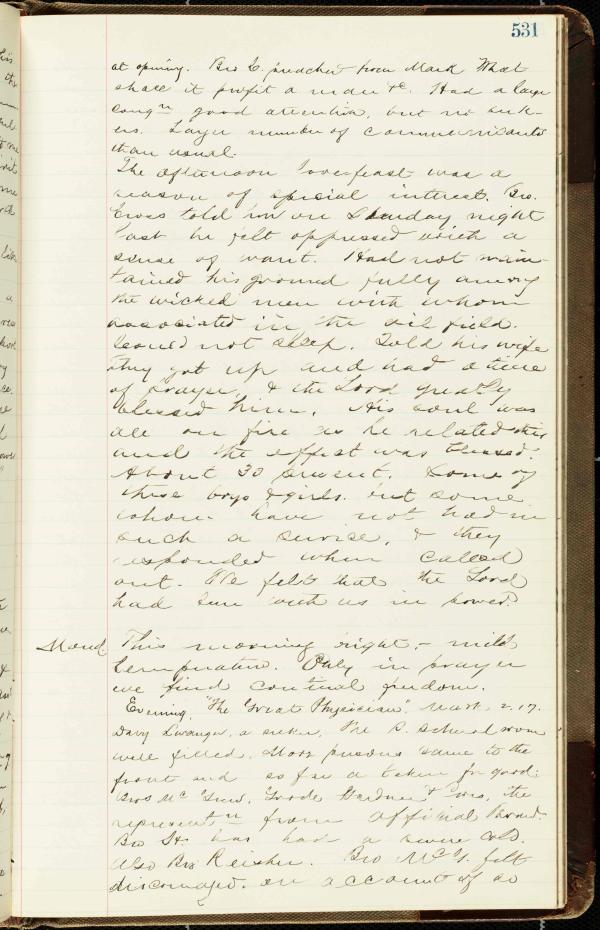 531
at opening. Bro C. preached from Mark What
shall it profit a man &c. Had a large
congn good attention, but no seek-
ers. Larger number of communicants
than usual.
The afternoon lovefeast was a
season of special interest. Bro.
Cross told how on Sunday night
last he felt oppressed with a
sense of want. Had not main-
tained his ground fully among
the wicked men with whom
associated in the oil field.
Could not sleep. Told his wife
They got up and had a time
of prayer, & the Lord greatly
blessed him. His soul was
all on fire as he related this
and the effect was blessed.
About 30 present. Some of
these boys & girls. but some
whom have not had in
such a service, & they
responded when called
out. We felt that the Lord
had been with us in power.
Mond. This morning bright, - mild
temperature. Only in prayer
we find continual freedom.
Evening, "The Great Physician" Mark. 2.17.
Davy, a seeker. The S. School room
well filled. More persons came to the
front and so far a token for good.
Bros Mc Grove, Gardner & the
representn from official Board.
Bro has had a severe cold.
Also Bro Reisher. Bro McG. felt
discouraged. on account of so